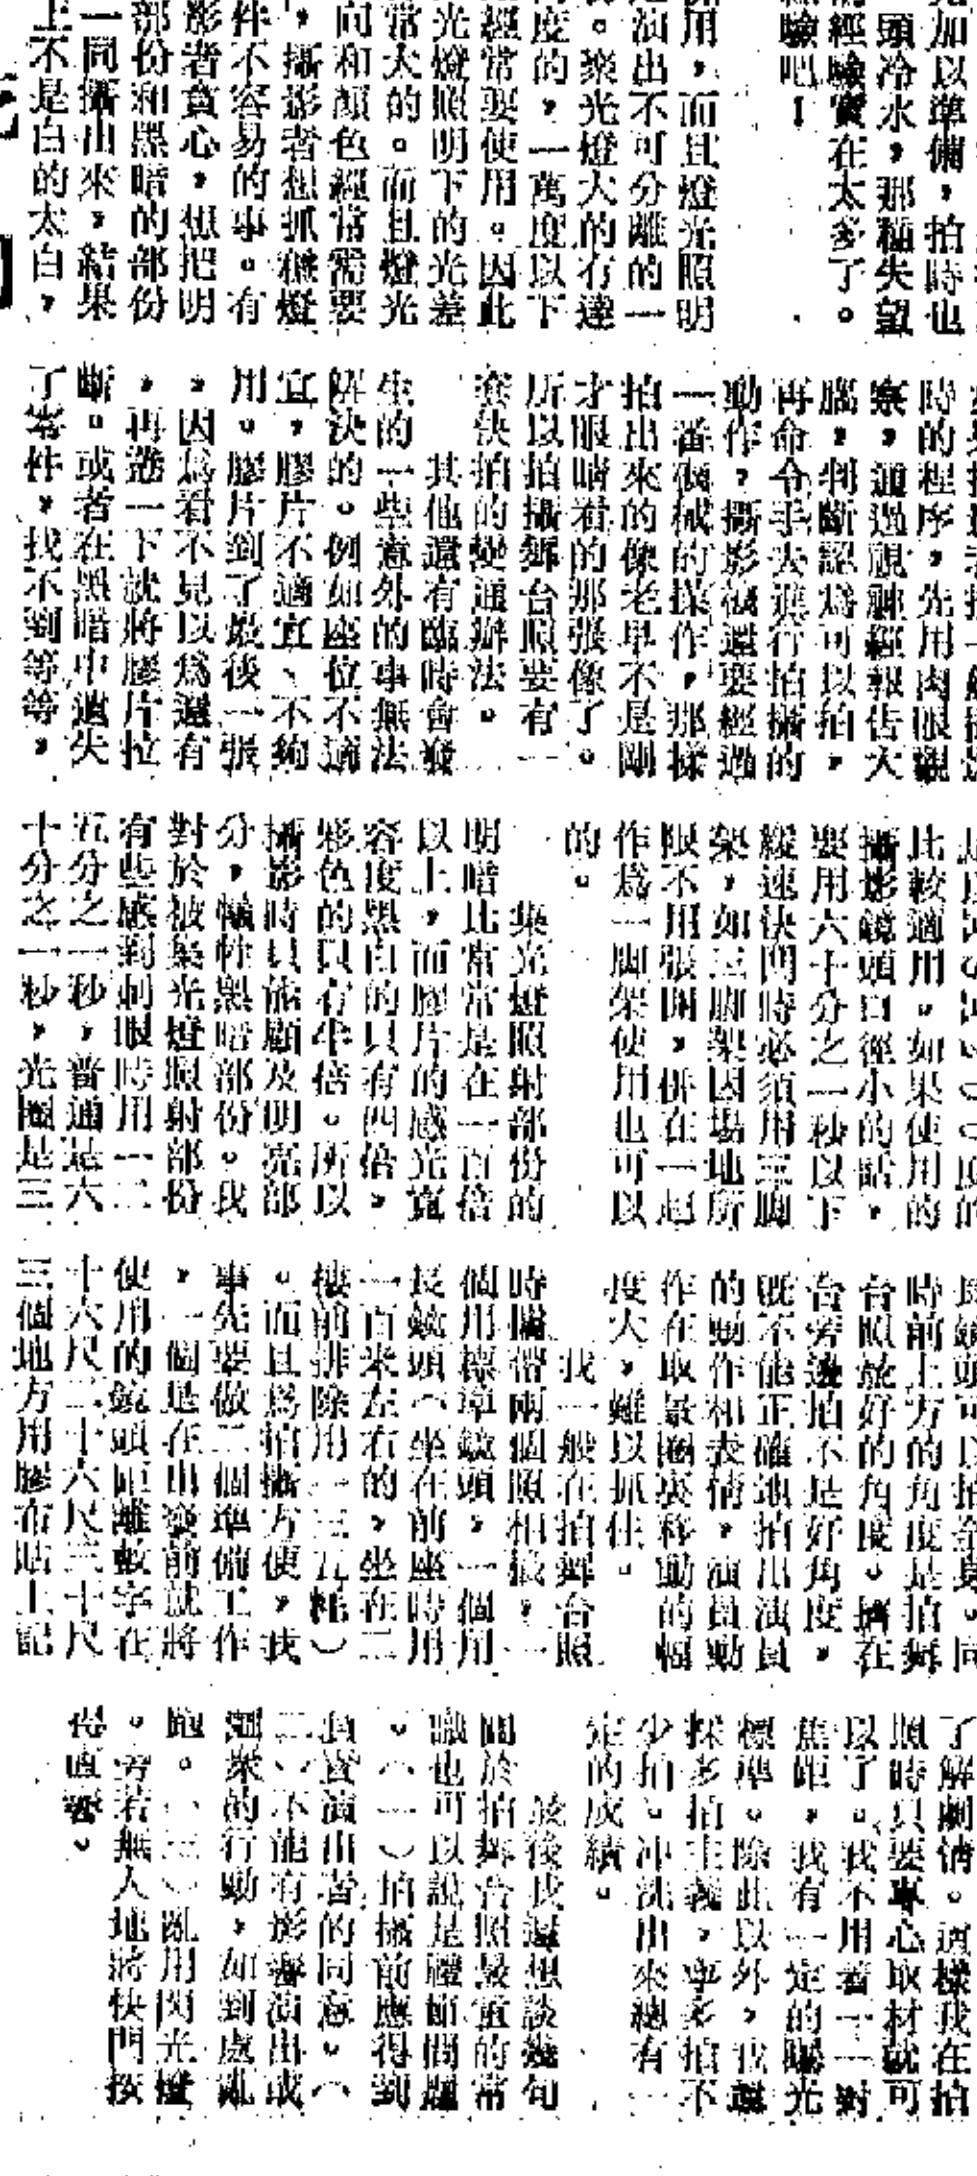 先加以準備，拍時也
頭冷水，那種失望
經驗實在太多了。
驗吧！
用，而且燈光照明
演出不可分離的一
。聚光燈大的有達
度的，一萬度以下
經常要使用。因此
光燈照明下的光差
常大的。而且燈光
向和顏色經常需要
，攝影者想抓穩燈
件不容易的事。有
影者貪心，想把明
部份和黑暗的部份
一同攝出來，結果
上不是白的太白，
時的程序，先用肉眼觀
察，通過視神經報告大
腦，判斷認爲可以拍，
再命令手去進行拍攝的
動作，攝影機還要經過
一番機械的操作，那樣
拍出來的像老早不是剛
才眼睛看的那張像了。
所以拍攝舞台照要有一
套快拍的變通辦法。
其他還有臨時會發
生的一些意外的事無法
解決的。例如座位不適
宜，膠片不適宜、不夠
用。膠片到了最後一張
，因爲看不見以爲還有
，再捲一下就將膠片拉
斷。或者在黑暗中遺失
了零件，找不到等等，
比較適用。如果使用的
攝影鏡頭口徑小的話，
要用六十分之一秒以下
緩速快門時必須用三脚
架，如三脚架因場地所
限不用張開，併在一起
作爲一脚架使用也可以
的。
集光燈照射部份的
明暗比常常是在一百倍
以上，而膠片的感光寬
容度黑白的只有四倍，
彩色的只有半倍。所以
攝影時只能顧及明亮部
分，犧牲黑暗部份。我
對於被集光燈照射部份
有些感到刺眼時用一二
五分之一秒，普通是六
十分之一秒，光圈是三
時前上方的角度是拍舞
台照最好的角度。擠在
台旁邊拍不是好角度，
既不能正確地拍出演員
的動作和表情，演員動
作在取景圈裏移動的幅
度大，難以抓住。
我一般在拍舞台照
時攜帶兩個照相機，一
個用標準鏡頭，一個用
長鏡頭（坐在前座時用
一百米左右的，坐在二
樓前排除用一三五粍）
。而且爲拍攝方便，我
事先要做二個準備工作
，一個是在出發前就將
使用的鏡頭距離數字在
十六尺二十六尺三十尺
三個地方用膠布貼上記
了解劇情。這樣我在拍
照時只要專心取材就可
以了。我不用着一一對
焦距，我有一定的曝光
標準。除此以外，也選
採多拍主義，寧多拍不
少拍。冲洗出來總有一
定的成績。
最後我還想談幾句
關於拍舞台照最重的常
識也可以說是禮節問題
。（一）拍攝前應得到
負責演出者的同意。（
二）不能有影響演出或
觀衆的行動，如到處亂
跑。（三）亂用閃光燈
。旁若無人地將快門按
得直響。